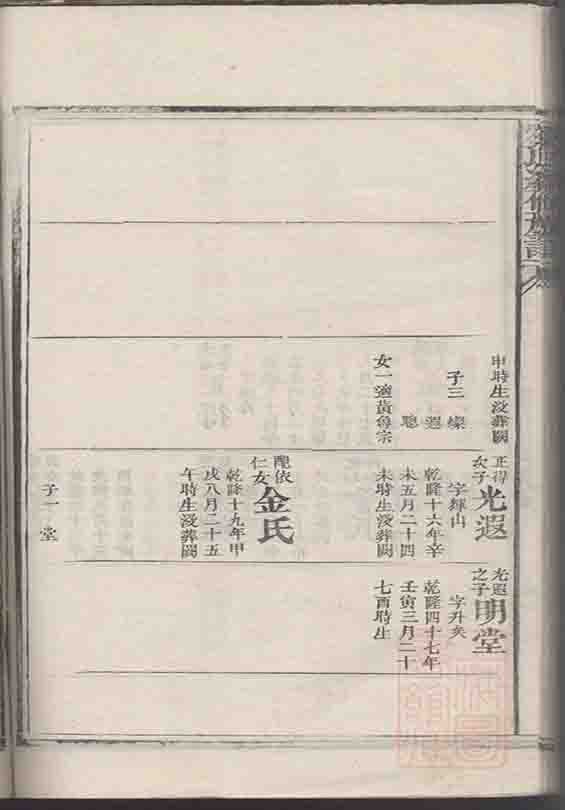 修族譜
申時生沒葬闕
子三 燦
遐
聰
女一適黃魯宗
正得次子光遐
字輝山
乾隆十六年辛
未五月二十四
未時生沒葬闕
配依仁女金氏
乾隆十九年甲
戌八月二十五
午時生沒葬闕
子一 堂
光遐之子明堂
字升矣
乾隆四十七年
壬寅三月二十
七酉時生